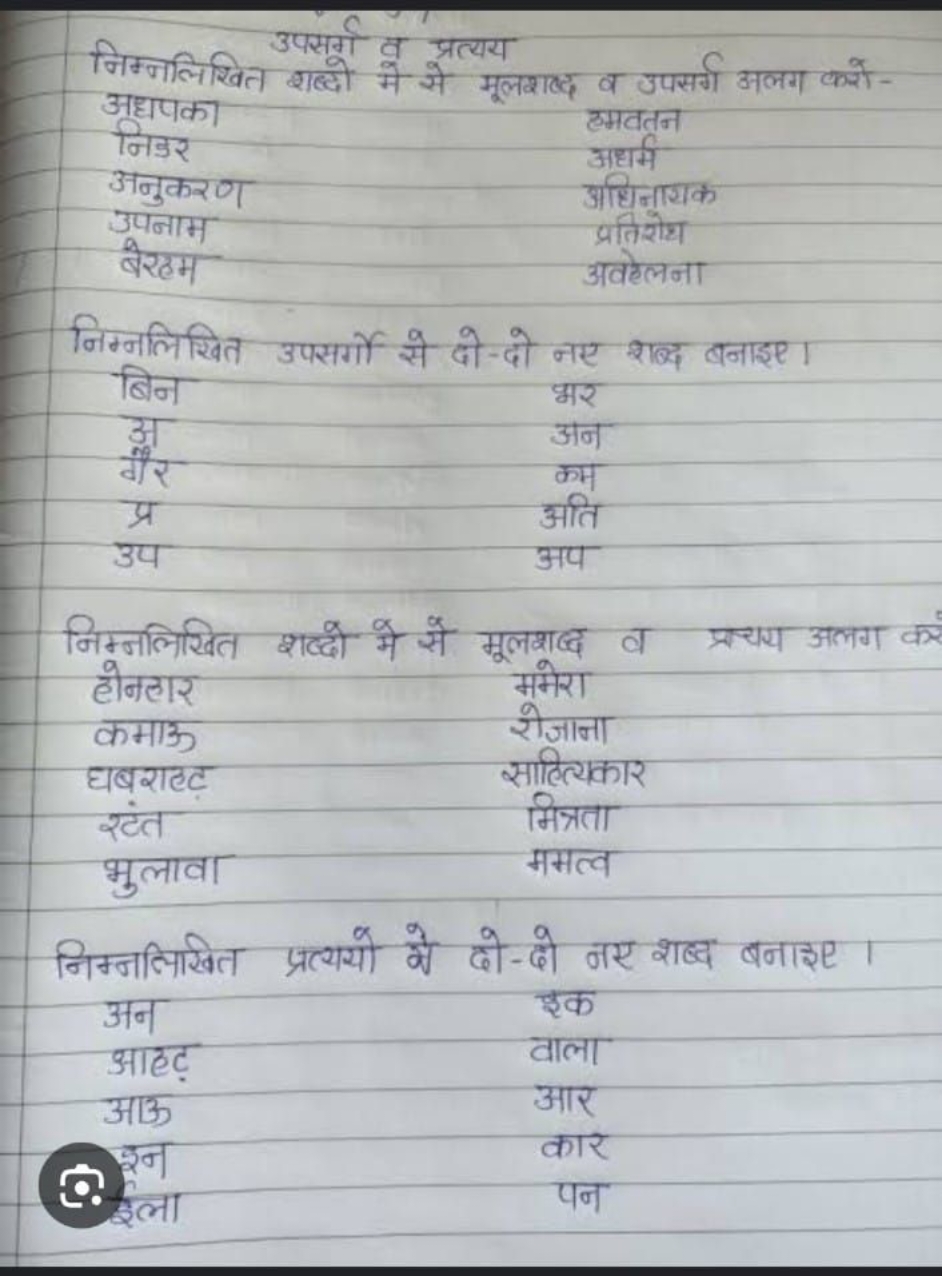 उपसर्ग व प्रत्यय
निम्नलिखित शब्दो मे से मूलशब्द व उपसर्ग अलग करो-
अधपका हमवतन
निडर अधर्म
अनुकरण अधिनायक
उपनाम प्रतिशोध
बेरहम अवहेलना
निम्नलिखित उपसर्गो से दो-दो नए शब्द बनाइए।
बिन भर
अ अन
गैर कम
प्र अति
उप अप
निम्नलिखित शब्दो मे से मूलशब्द व प्रत्यय अलग
होनहार ममेरा
कमाऊ रोजाना
घबराहट साहित्यकार
रटंत मित्रता
भुलावा ममत्व
निम्नलिखित प्रत्ययो से दो-दो नए शब्द बनाइए ।
अन इक
आहट वाला
आऊ आर
इन कार
ईला पन